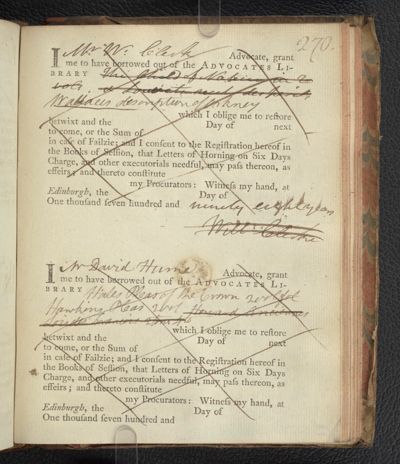 270.
I Mr Wm Clerk Advocate, grant
me to have borrowed out of the ADVOCATES LI-
BRARY The in 2
vols
Wallaces description of Orkney
which I oblige me to reſtore
betwixt and the Day of next
to come, or the Sum of
in caſe of Failzie; and I conſent to the Regiſtration hereof in
the Books of Seſſion, that Letters of Horning on Six Days
Charge, and other executorials needful, may paſs thereon, as
effeirs; and thereto conſtitute
my Procurators: Witneſs my hand, at
Edinburgh, the Day of
One thouſand ſeven hundred and ninety eight years
Will: Clerke
I Mr David Hume Advocate, grant
me to have borrowed out of the ADVOCATES LI-
BRARY Hales Pleas of the Crown 2 vol fol
Hawkins Pleas 2 vol
which I oblige me to reſtore
betwixt and the Day of next
to come, or the Sum of
in caſe of Failzie; and I conſent to the Regiſtration hereof in
the Books of Seſſion, that Letters of Horning on Six Days
Charge, and other executorials needful, may paſs thereon, as
effeirs; and thereto conſtitute
my Procurators: Witneſs my hand, at
Edinburgh, the Day of
One thouſand ſeven hundred and